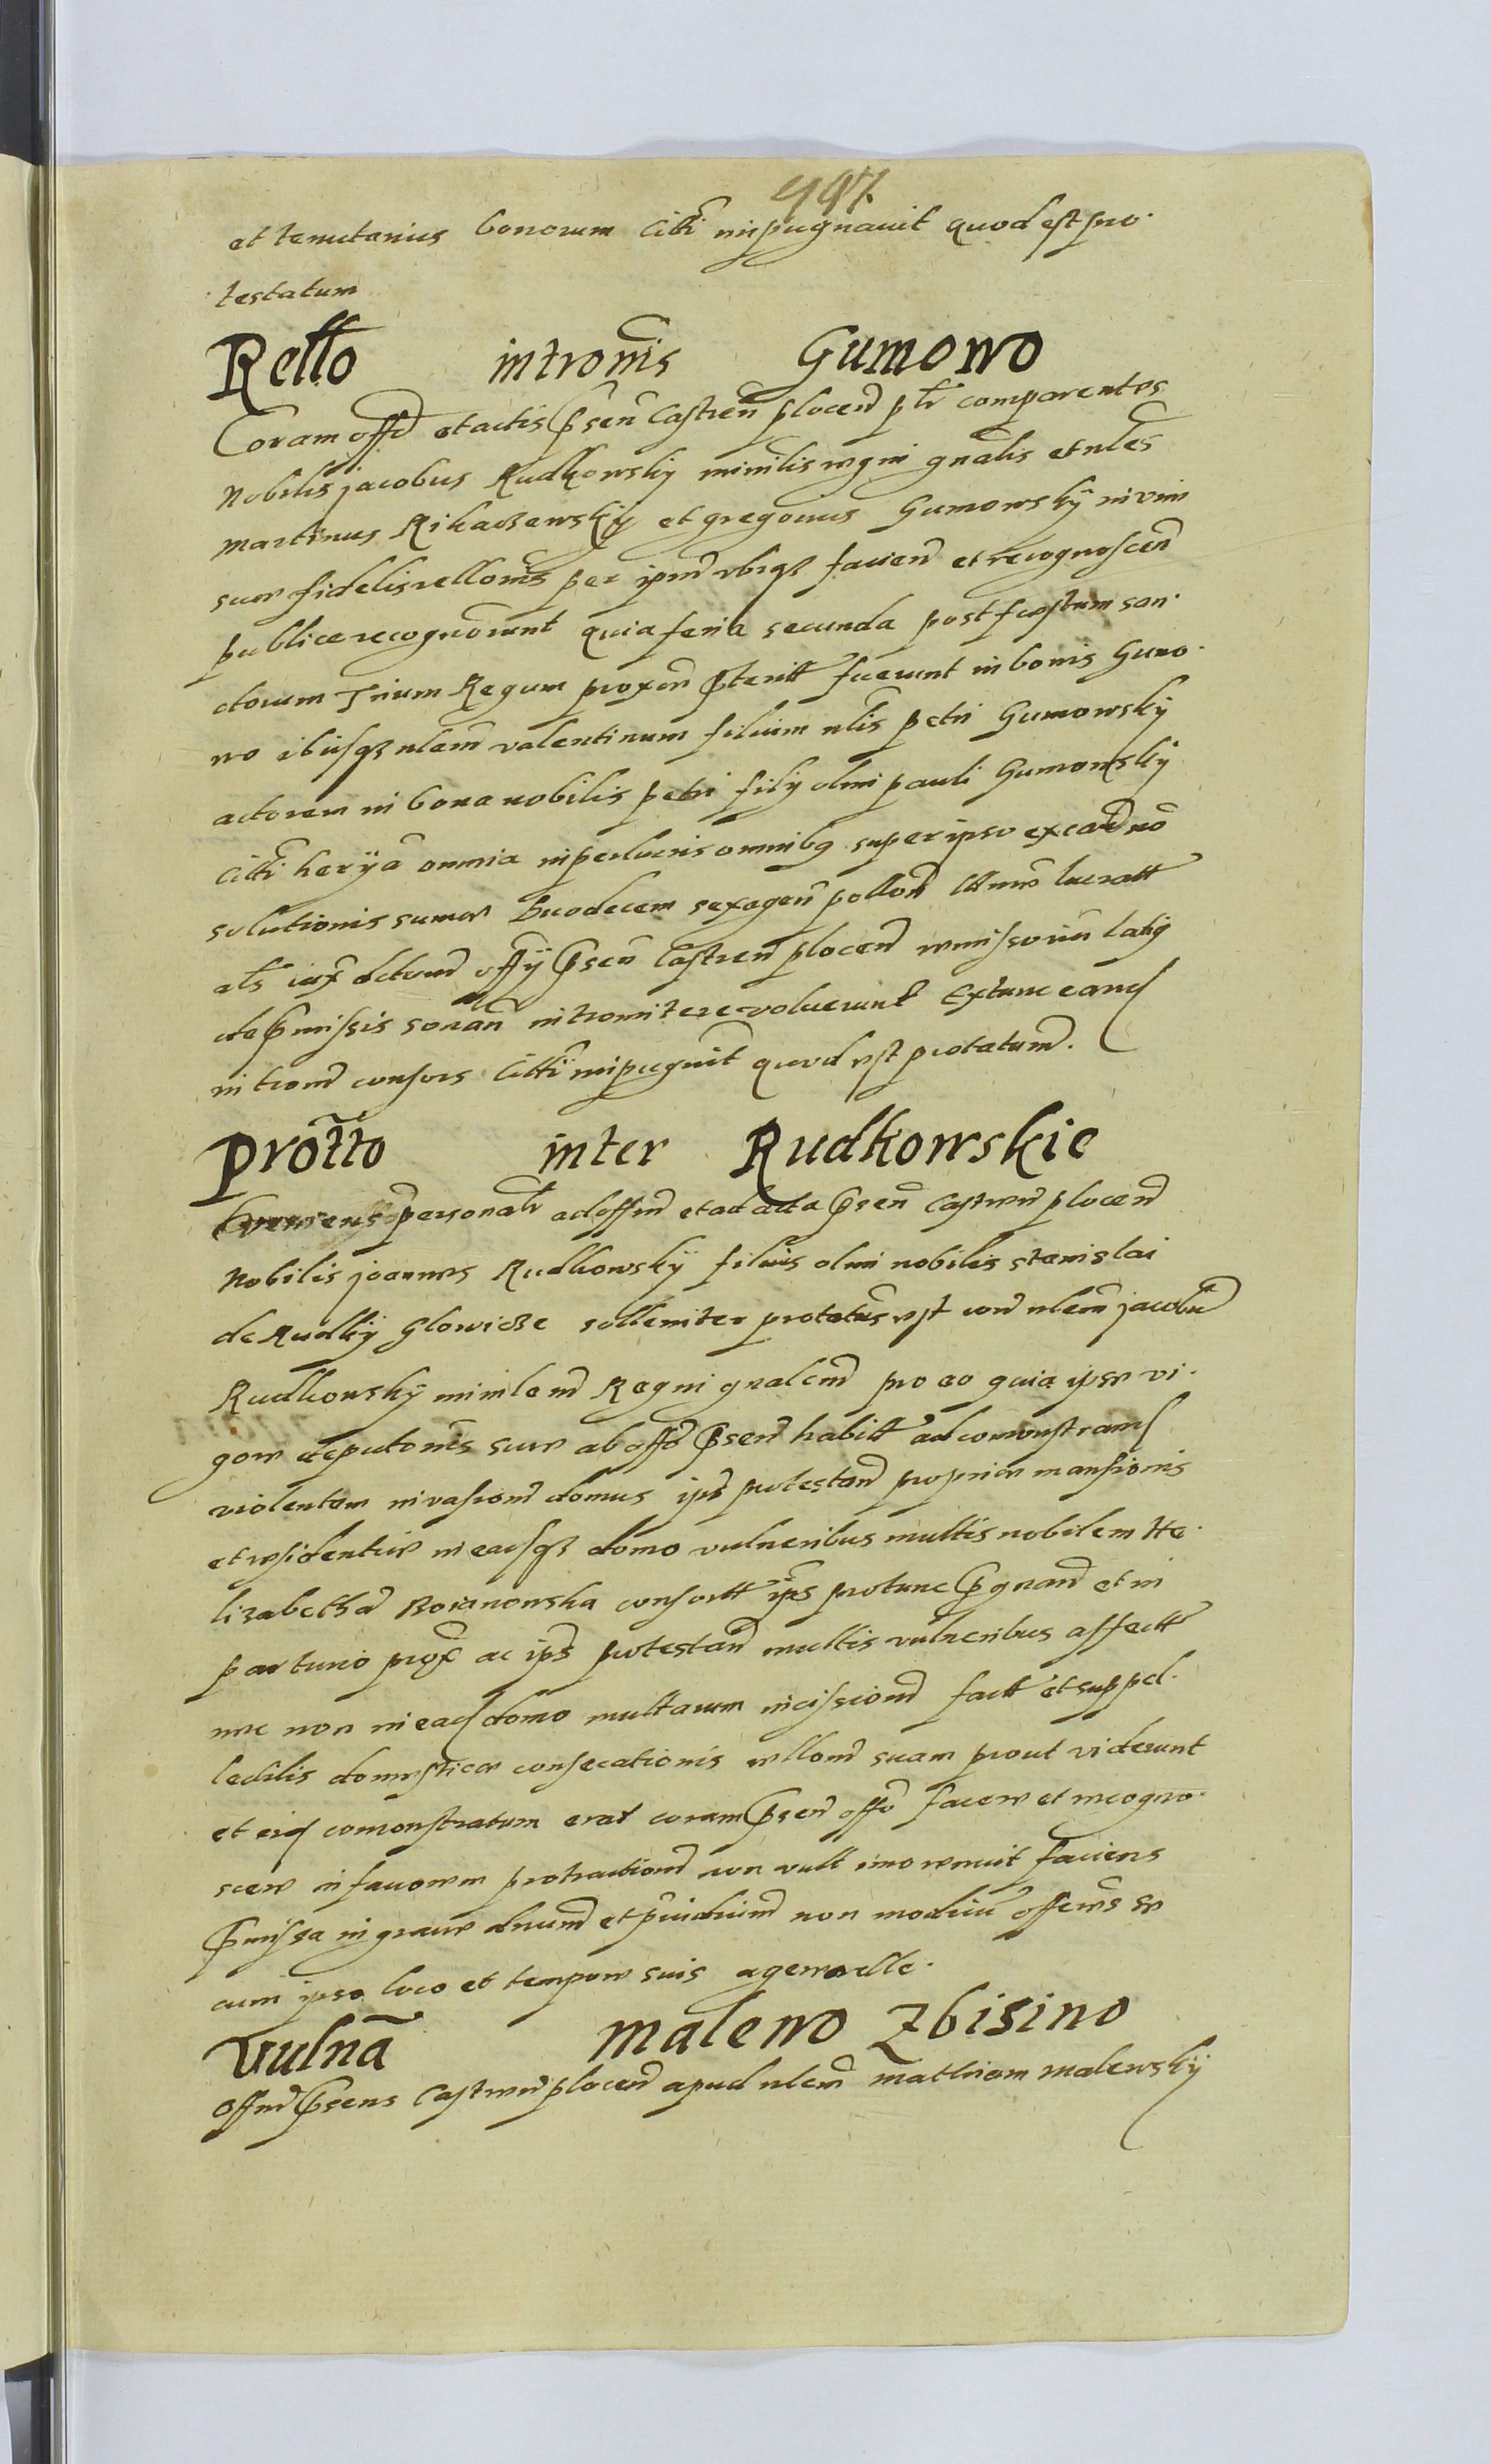 997
et tenutarius bonorum Citti impugnauit quod est pro
testatum
Rello intromis Gumowo
Coram offo et actis psen Castren plocen ptr comparentes
Nobilis jacobus Rudkowsky minilis regni gnalis et nles
martinus Rikaczewsky et gregorius Gumowsky in vim
suae fidelis rellonis per ipm vbiqz faciend et recognoscen
publice recognorunt quia feria secunda post festum san
ctorum Trium Regum proxim pterit fuerunt in bonis Gumo
wo ibusqz nlem valentinum filium nlis petri Gumowsky
actorem in bona nobilis petri filij olim pauli Gumowsky
Citti omnia in perlucris omnibq super ipso
solutionis summe duodecem sexagen pollon lucratt
als iux offij psen Castren plocen remissorium latiq
de pmissis sonan intromitere voluerunt Extunc eand
introm consors Citti impugnit quod est protatum.
protto inter Rudkowskie
personalr ad offm et ad acta psen Castren plocen
Nobilis joannes Rudkowsky filius olim nobilis stanislai
de Rudky Glowicze solleniter protatus est con nlem jacobu
Rudkowsky minlem Regni gnalem pro eo quia ipse vi
gore deputonis sue ab offo psen habitt ad comonstrand
violentam invasionem domus ips protestan proprie mansionis
et residentiae in easqz domo vulneribus multis nobilem He
lizabetham Boianowska consortt ips protunc pgnan et in
parturio prox ac ips protestan multis vulneribus affectt
nec non in ead domo multarum incissionem factt et suppel
lectilis domesticae consecationis rellonem suam prout viderunt
et eid comonstratum erat coram psen offo facere et recogno
scere in fauorem protractionem non vult imo renuit faciens
pmissa in graue dnum et piudiium non modicum offerens se
cum ipso loco et tempore suis agere velle.
Vulna malewo Zbisino
Offm psens Castren plocen apud nlem mathiam malewsky